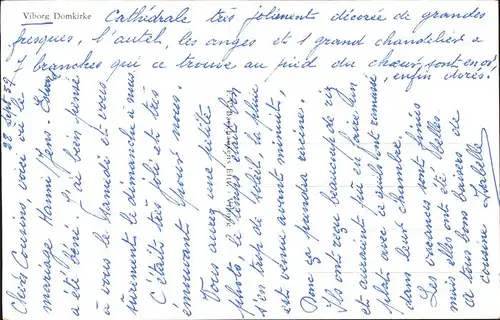 Viborg Domkirke
Cathédrale très joliment décorée de grandes
fresques, l'autel, les anges et 1 grand chandelier à
7 branches qui se trouve au pied du chœur sont en or,
enfin dorés.
28 Sept 59
Chers Cousins, voici où le
mariage Hanni Jens-
a été béni. J'ai bien pensé
à vous le samedi et vous
sûrement le dimanche à nous.
C'était très joli et très
émouvant pour nous.
Vous avez une petite
photo, le temps était bon
s'en trop de soleil, la pluie
est venue avant minuit,
Donc es pandra vicine.
Ils ont reçu beaucoup de riz
et auraient pu en faire un
plat avec ce qu'ils ont ramassé
dans leur chambre.
Les vacances sont finies
mais elles ont été belles.
à tous bons baisers de
cousine Isabelle